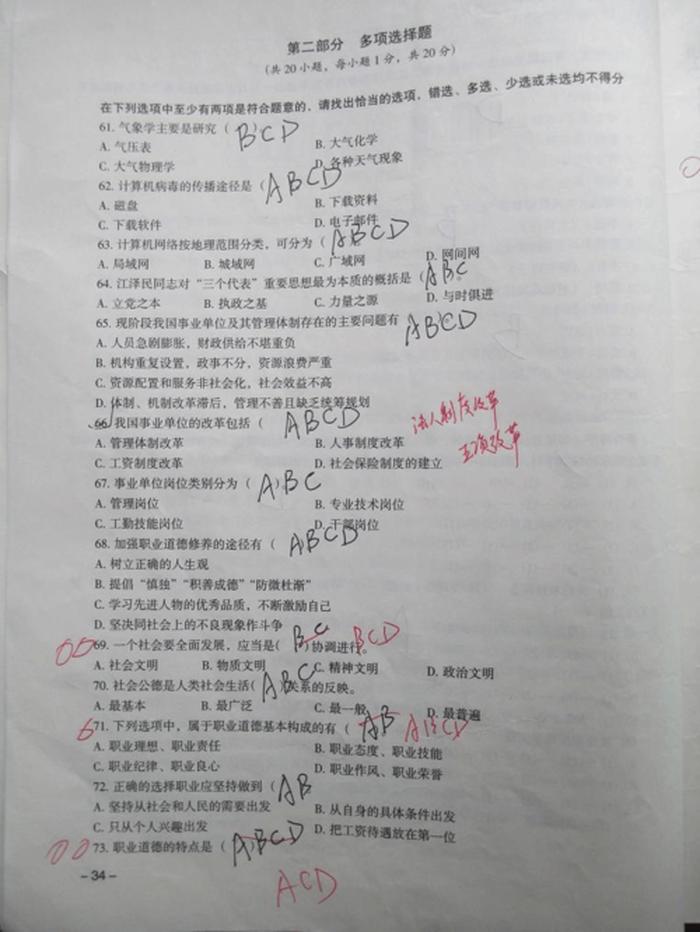 第二部分 多项选择题
(共20小题，每小题1分，共20分)
在下列选项中至少有两项是符合题意的，请找出恰当的选项，错选、多选、少选或未选均不得分
61. 气象学主要是研究( BCD
A. 气压表 B. 大气化学
C. 大气物理学 D. 各种天气现象
62. 计算机病毒的传播途径是( ABCD
A. 磁盘 B. 下载资料
C. 下载软件 D. 电子邮件
63. 计算机网络按地理范围分类，可分为( ABCD
A. 局域网 B. 城域网 C. 广域网 D. 网间网
64. 江泽民同志对“三个代表”重要思想最为本质的概括是( ABC
A. 立党之本 B. 执政之基 C. 力量之源 D. 与时俱进
65. 现阶段我国事业单位及其管理体制存在的主要问题有 ABCD
A. 人员急剧膨胀，财政供给不堪重负
B. 机构重复设置，政事不分，资源浪费严重
C. 资源配置和服务非社会化，社会效益不高
D. 体制、机制改革滞后，管理不善且缺乏统筹规划
66. 我国事业单位的改革包括( ABCD 法人制度改革
A. 管理体制改革 B. 人事制度改革 五项改革
C. 工资制度改革 D. 社会保险制度的建立
67. 事业单位岗位类别分为( ABC
A. 管理岗位 B. 专业技术岗位
C. 工勤技能岗位 D. 干部岗位
68. 加强职业道德修养的途径有( ABCD
A. 树立正确的人生观
B. 提倡“慎独”“积善成德”“防微杜渐”
C. 学习先进人物的优秀品质，不断激励自己
D. 坚决同社会上的不良现象作斗争
69. 一个社会要全面发展，应当是( BC )协调进行。 BCD
A. 社会文明 B. 物质文明 C. 精神文明 D. 政治文明
70. 社会公德是人类社会生活( ABC )关系的反映。
A. 最基本 B. 最广泛 C. 最一般 D. 最普遍
71. 下列选项中，属于职业道德基本构成的有( AB ABCD
A. 职业理想、职业责任 B. 职业态度、职业技能
C. 职业纪律、职业良心 D. 职业作风、职业荣誉
72. 正确的选择职业应坚持做到( AB
A. 坚持从社会和人民的需要出发 B. 从自身的具体条件出发
C. 只从个人兴趣出发 D. 把工资待遇放在第一位
73. 职业道德的特点是( ABCD
ACD
- 34 -